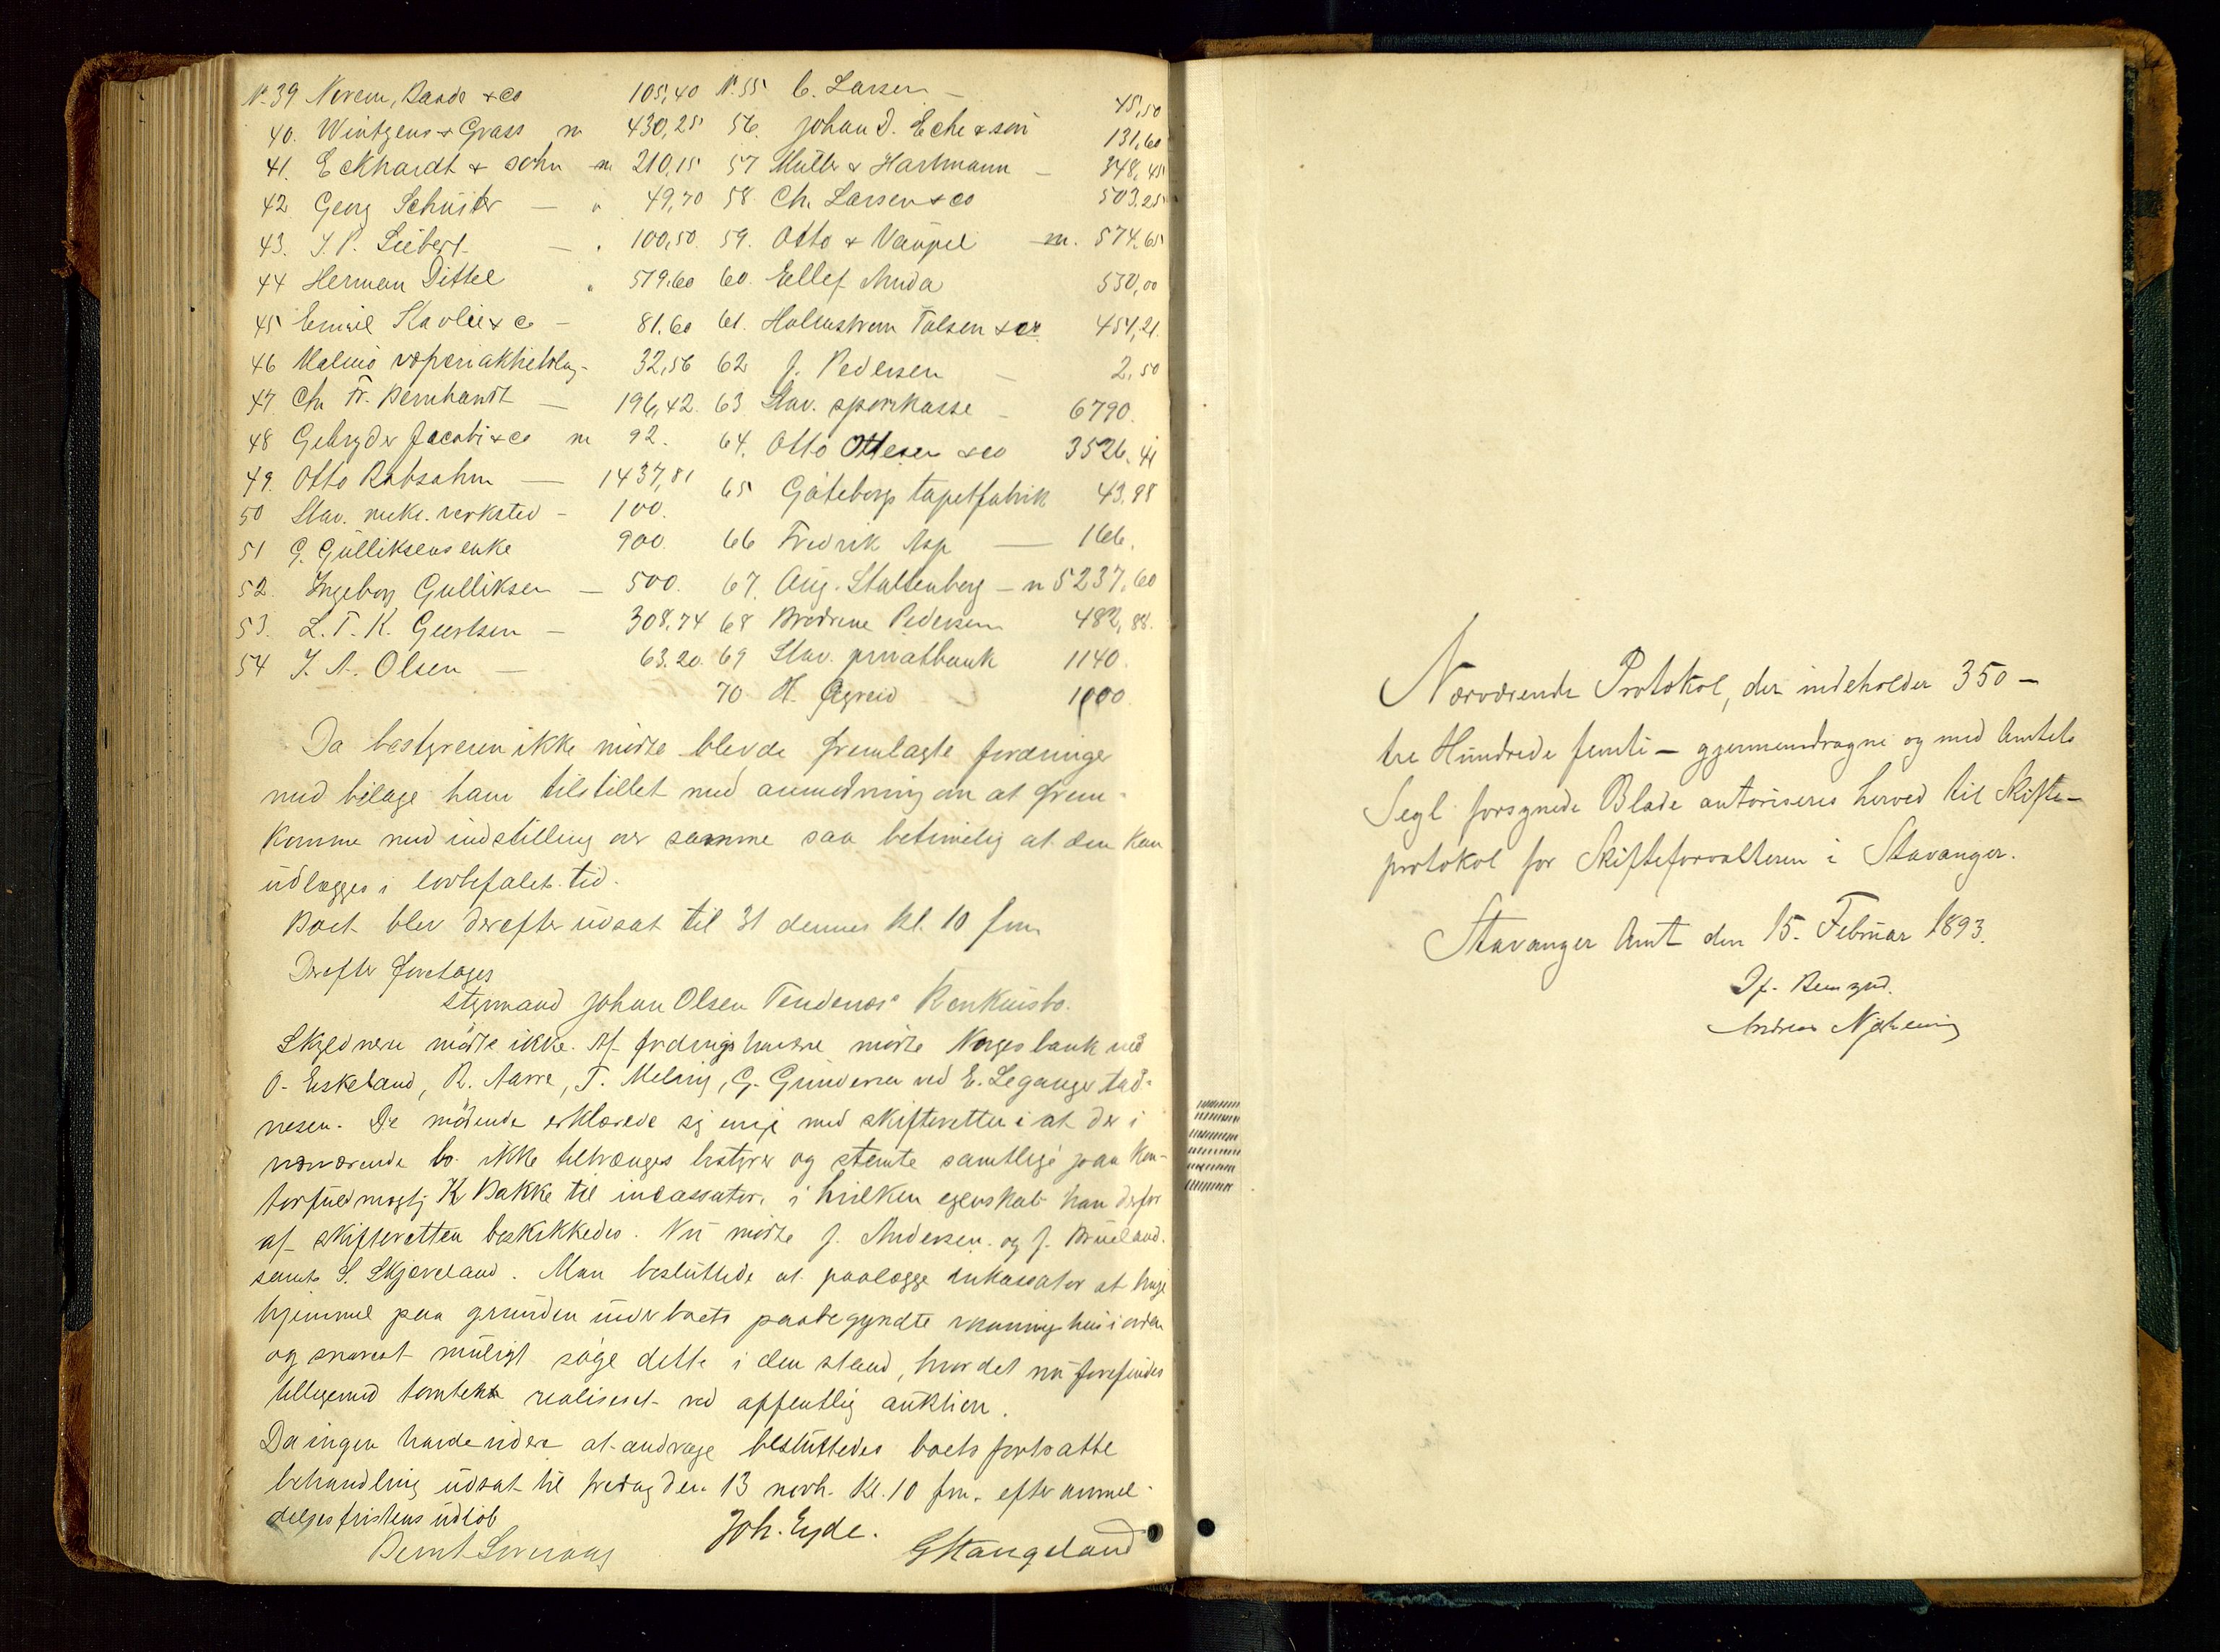 No. 39 Norem, Baade & co 105,40
40. Wintgens & Grass m 430,25
41. Eckhardt & sohn m 210,15
42 Georg Schüster — " 49,70
43. J. P. Liebert — " 100,50
44 Herman Dittel " 519.60
45 Emil Kavlie & Co — 81.60
46 Malmö 32,56
47 Chr Fr. Bernhardt — 196,42
48 Gebryder Jacobi & co m 92.
49. Otto Robsahm — 1437,81
50 Stav. mek. verksted — 100.
51 G. Gulliksens enke 900.
52. Ingeborg Gulliksen — 500.
53. L. T. K. Geertsen — 308,74
54 J. A. Olsen — 63.20
No. 55 C. Larsen — 45,50
56. Johan D. Eche & sön 131,60
57 Müller & Hartmann — 848,45
58 Ch. Larsen & co 503,25
59. Otto & Vaupel m. 574,65
60. Ellef Muda 550,00
61. Holmstrøm Tolsen & co 454,21.
62 J. Pedersen — 2,50
63 Stav. sparekasse — 6790.
64. Otto Ottesen & co 3526.41
65 Göteborgs tapetfabrik 43,98
66 Fredrik Asp — 166.
67. Aug. Staltenberg — m 5237,60
68 Brødrene Pedersen 482,88.
69 Stav. privatbank 1140.
70 H. Ogreid 1000
Da bestyreren ikke mødte blev de fremlagte fordringer
med bilage ham tilstillet med anmodning om at frem-
komme med indstilling over samme saa betimelig at den kan
udlægges i lovbefalet tid.
Boet blev derefter udsat til 31 dennes kl. 10 fm
Derefter foretoges
styrmand Johan Olsen Tendenæs' konkursbo.
Skyldneren mødte ikke. Af fordringshavere mødte Norges bank ved
O. Eskeland, R. Aarre, T. Meling, G. Gundersen ved E. Leganger tad-
nesen. De mødende erklærede sig enig med skifteretten i at der i
nærværende bo ikke tiltrænges bestyrer og stemte samtlige paa kon-
torfuldmægtig K Bakke til incassator, i hvilken egenskab han derfor
af skifteretten beskikkedes. Nu mødte J. Andersen og J. Brueland.
samt S. Skjæveland. Man besluttede at paalægge inkassator at bringe
hjemmel paa grunden under boets paabegyndte vaaningshus i orden
og snarest muligt søge dette i den stand, hvor det nu forefindes
tilligemed tomten realiseret ved offentlig auktion.
Da ingen havde videre at andrage besluttedes boets fortsatte
behandling udsat til fredag den 13 novb. kl. 10 fm. efter anmel-
delsesfristens udløb
Joh. Eyde. GStangeland
Nærværende Protokol, der indeholder 350 —
tre Hundrede femti — gjennemdragne og med Amtets
Segl forsynede Blade autoriseres herved til Skifte-
protokol for Skifteforvalteren i Stavanger.
Stavanger Amt den 15. Februar 1893.
If. Bemynd.